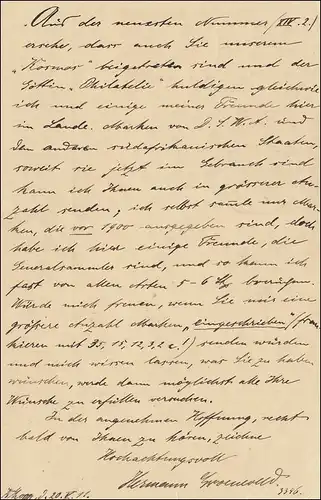 Aus der neuesten Nummer (XIX. 2.)
ersehe, dass auch Sie unserem
"Kosmos" beigetreten sind und der
Göttin "Philatelie" huldigen gleichwie
ich und einige meiner Freunde hier
im Lande. Marken von D. S. W. A. und
den anderen südafrikanischen Staaten,
soweit sie jetzt im Gebrauch sind
kann ich Ihnen auch in grösserer An-
zahl senden, ich selbst samle nur Mar-
ken, die vor 1900 ausgegeben sind, doch
habe ich hier einige Freunde, die
Generalsammler sind, und so kann ich
fast von allen Arten 5-6 Stk
Würde mich freuen, wenn Sie mir eine
größere Anzahl Marken, "eingeschrieben" (fran-
kieren mit 35, 15, 12, 3, 2 c.!) senden würden
und mich wissen lassen, was Sie zu haben
wünschen, werde dann möglichst alle Ihre
Wünsche zu erfüllen versuchen.
In der angenehmen Hoffnung, recht
bald von Ihnen zu hören, zeichne
Hochachtungsvoll
Hermann
20. V. 11. 3386.